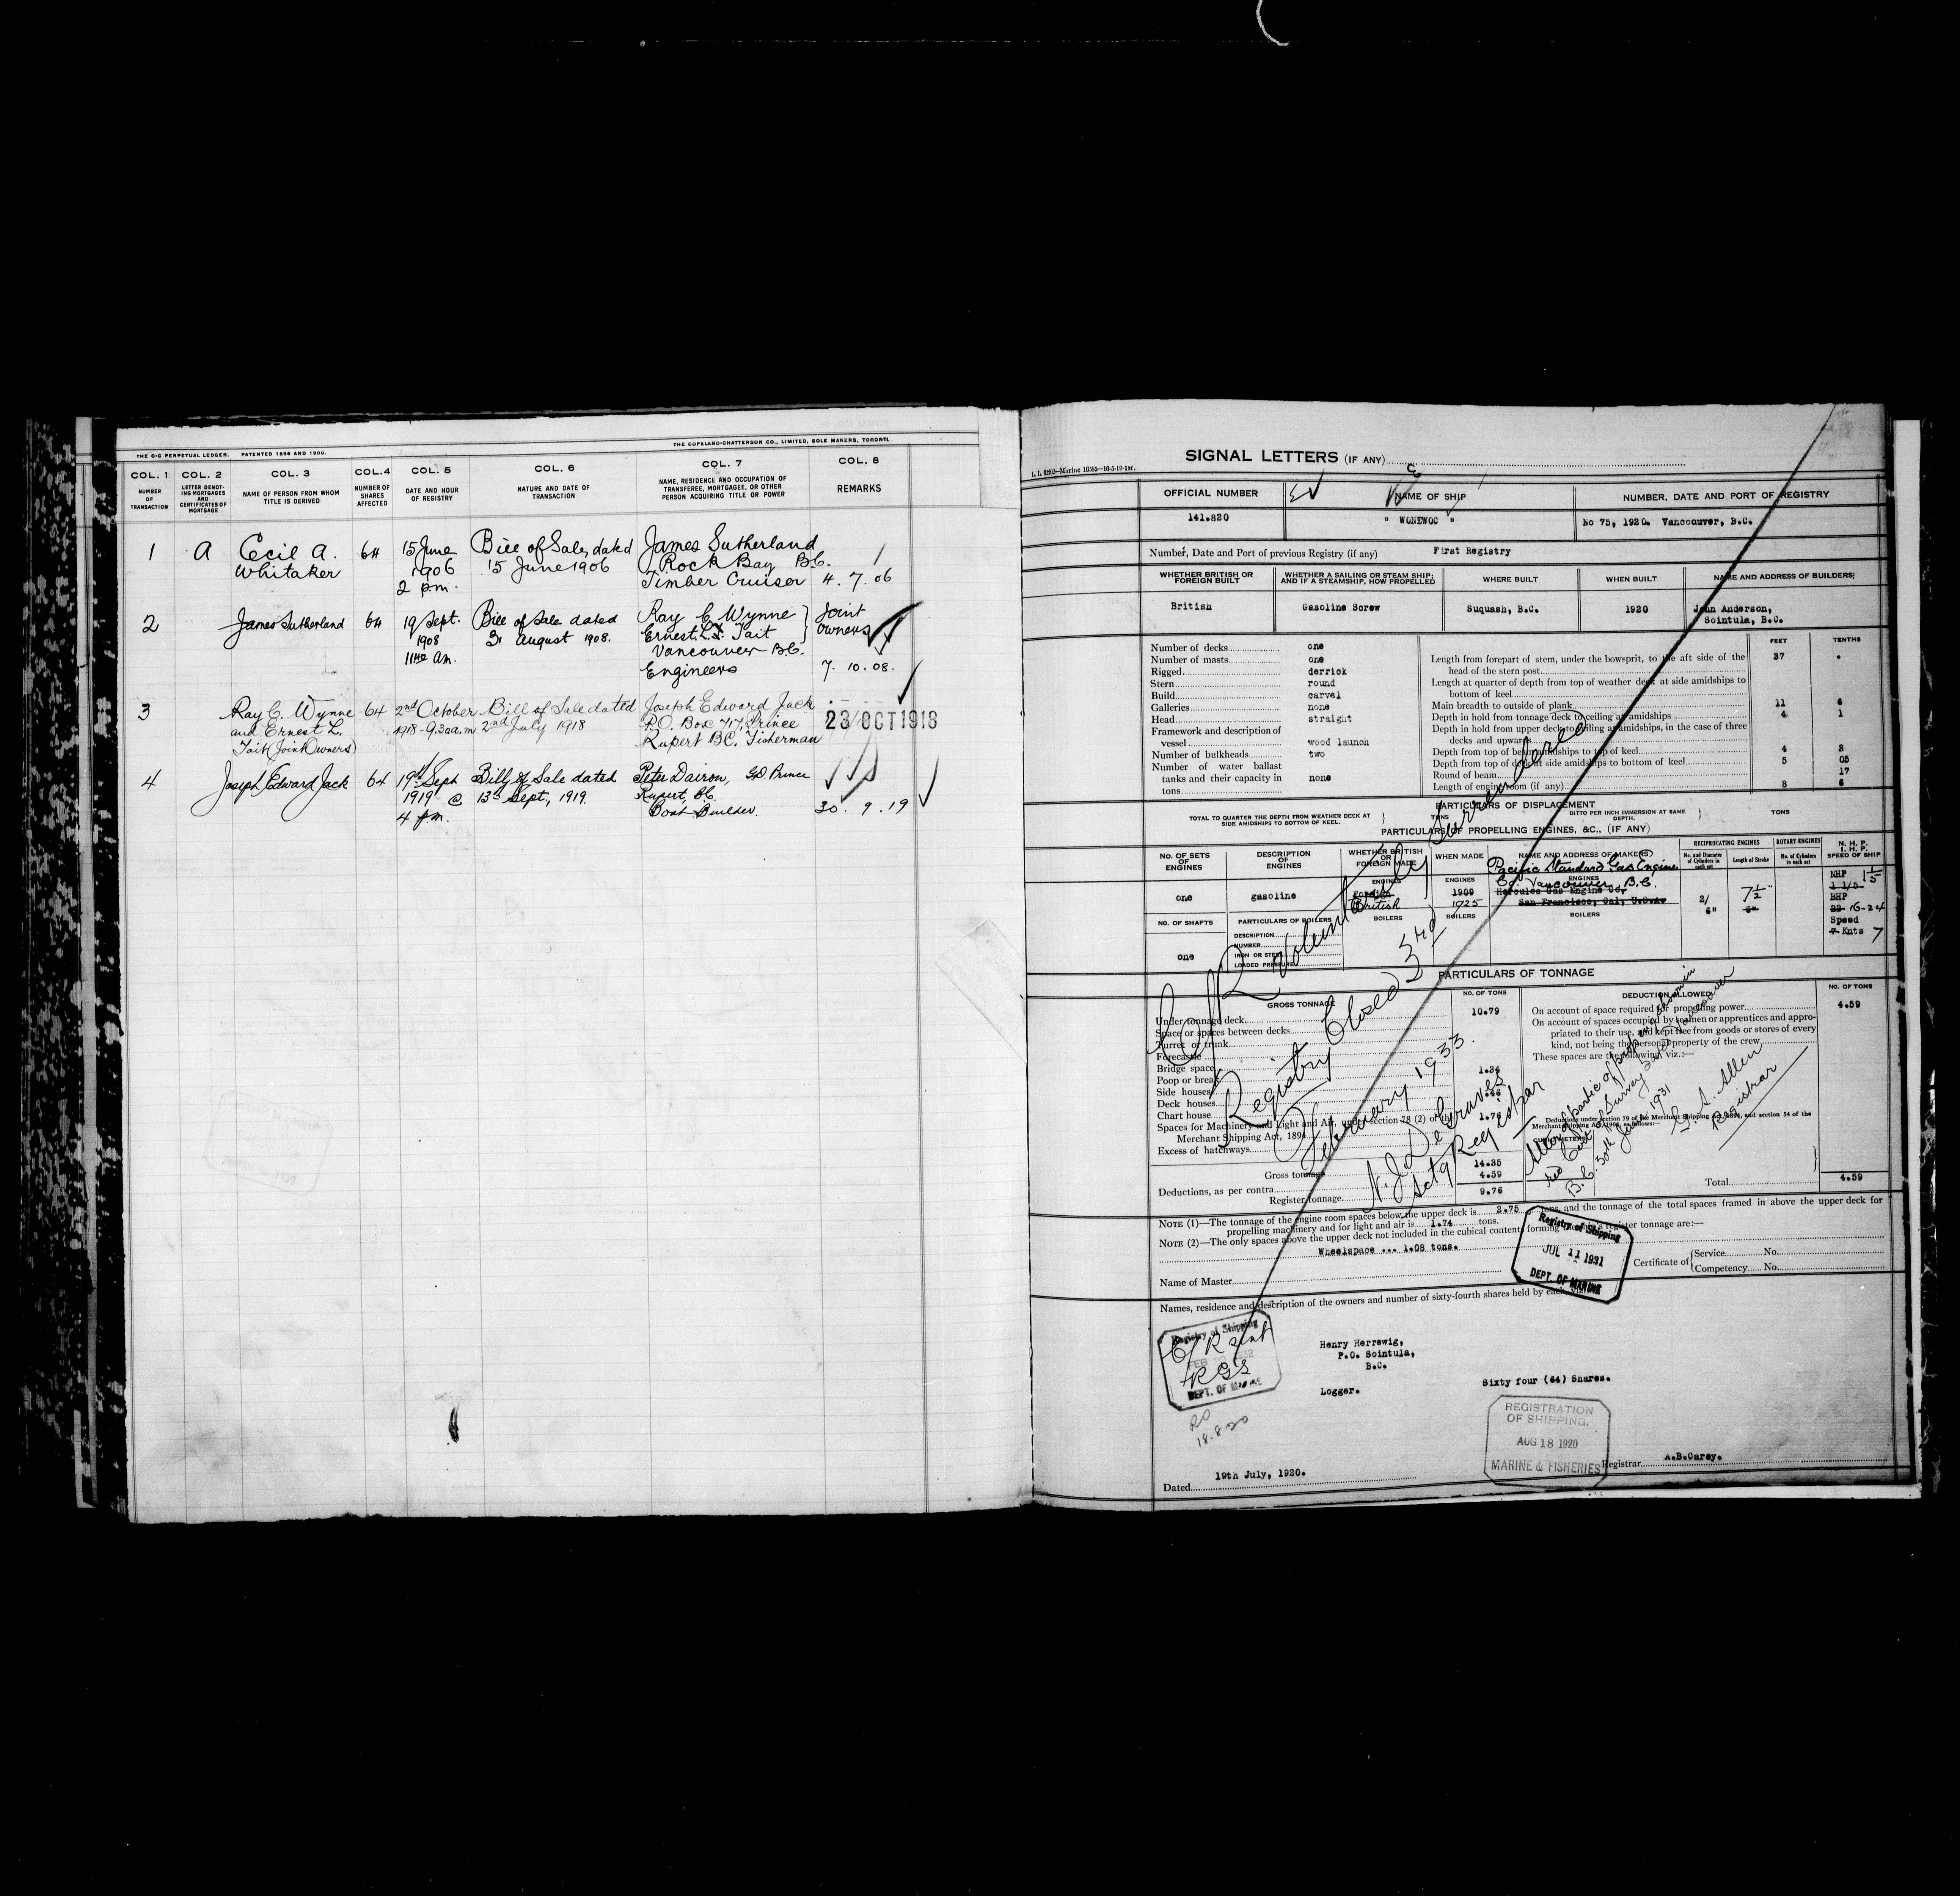 THE C-C PERPETUAL LEDGER. PATENTED 1896 AND 1900.
THE COPELAND-CHATTERSON CO., LIMITED, SOLE MAKERS, TORONTO.
COL. 1 COL. 2 COL. 3 COL. 4 COL. 5 COL. 6 COL. 7 COL. 8
NUMBER OF TRANSACTION
LETTER DENOTING MORTGAGES AND CERTIFICATES OF MORTGAGE
NAME OF PERSON FROM WHOM TITLE IS DERIVED
NUMBER OF SHARES AFFECTED
DATE AND HOUR OF REGISTRY
NATURE AND DATE OF TRANSACTION
NAME, RESIDENCE AND OCCUPATION OF TRANSFEREE, MORTGAGEE, OR OTHER PERSON ACQUIRING TITLE OR POWER
REMARKS
1 A Cecil A. 64 15 June Bill of Sale, dated James Sutherland
Whitaker 1906 15 June 1906 Rock Bay B.C.
2 p.m. Timber Cruiser 4. 7. 06
2 James Sutherland 64 19 Sept. Bill of Sale dated Ray C. Wynne } Joint
1908 31 August 1908. Ernest L. Tait owners
11 am. Vancouver B.C.
Engineers 7. 10. 08.
3 Ray C. Wynne 64 2nd October Bill of Sale dated Joseph Edward Jack
and Ernest L. 1918 - 9.30 a.m 2nd July 1918 P.O. Box 717, Prince 23 OCT 1918
Tait (Joint Owners) Rupert B.C. Fisherman
4 Joseph Edward Jack 64 19th Sept Bill of Sale dated Peter Dairon, GD Prince
1919 @ 13th Sept, 1919. Rupert, BC.
4 p.m. Boat Builder. 30. 9. 19
SIGNAL LETTERS (IF ANY)
OFFICIAL NUMBER NAME OF SHIP NUMBER, DATE AND PORT OF REGISTRY
141.820 " WONEWOC " No 75, 1920. Vancouver, B.C.
Number, Date and Port of previous Registry (if any) First Registry
WHETHER BRITISH OR FOREIGN BUILT
WHETHER A SAILING OR STEAM SHIP; AND IF A STEAMSHIP, HOW PROPELLED
WHERE BUILT
WHEN BUILT
NAME AND ADDRESS OF BUILDERS
British Gasoline Screw Suquash, B.C. 1920 John Anderson,
Sointula, B.C.
FEET TENTHS
Number of decks one
Number of masts one
Rigged derrick
Stern round
Build carvel
Galleries none
Head straight
Framework and description of
vessel wood launch
Number of bulkheads two
Number of water ballast
tanks and their capacity in
tons none
Length from forepart of stem, under the bowsprit, to the aft side of the
head of the stern post 37 .
Length at quarter of depth from top of weather deck at side amidships to
bottom of keel
Main breadth to outside of plank 11 6
Depth in hold from tonnage deck to ceiling at amidships 4 1
Depth in hold from upper deck to ceiling at amidships, in the case of three
decks and upwards
Depth from top of beam amidships to top of keel 4 3
Depth from top of deck at side amidships to bottom of keel 5 05
Round of beam 17
Length of engine room (if any) 8 6
PARTICULARS OF DISPLACEMENT
TOTAL TO QUARTER THE DEPTH FROM WEATHER DECK AT SIDE AMIDSHIPS TO BOTTOM OF KEEL. } TONS
DITTO PER INCH IMMERSION AT SAME DEPTH. } TONS
PARTICULARS OF PROPELLING ENGINES, &C., (IF ANY)
No. OF SETS OF ENGINES
DESCRIPTION OF ENGINES
WHETHER BRITISH OR FOREIGN MADE
WHEN MADE
NAME AND ADDRESS OF MAKERS
RECIPROCATING ENGINES
No. and Diameter of Cylinders in each set
Length of Stroke
ROTARY ENGINES
No. of Cylinders in each set
N. H. P.
I. H. P.
SPEED OF SHIP
Pacific Standard Gas Engine
Co. Vancouver, B.C.
ENGINES ENGINES ENGINES
one gasoline Foreign 1909 Hercules Gas Engine Co,
British 1925 San Francisco, Cal, U.S.A.
2/ 6" 7½" 6"
NHP 1 1/5
1 1/5
BHP
22 16-24
Speed
7 Knts 7
No. OF SHAFTS PARTICULARS OF BOILERS BOILERS BOILERS BOILERS
one
DESCRIPTION
NUMBER
IRON OR STEEL
LOADED PRESSURE
C/R Voluntarily Surrendered
Registry Closed 3rd
February 1933.
N. J. DeGraves
Actg Registrar
PARTICULARS OF TONNAGE
GROSS TONNAGE No. OF TONS DEDUCTION ALLOWED No. OF TONS
Under tonnage deck 10.79
Space or spaces between decks
Turret or trunk
Forecastle
Bridge space
Poop or break 1.34
Side houses
Deck houses .46
Chart house
Spaces for Machinery and Light and Air, under section 78 (2) of the
Merchant Shipping Act, 1894 1.76
Excess of hatchways
Gross tonnage 14.35
Deductions, as per contra 4.59
Register tonnage 9.76
On account of space required for propelling power 4.59
On account of spaces occupied by seamen or apprentices and appro-
priated to their use, and kept free from goods or stores of every
kind, not being the personal property of the crew
These spaces are the following, viz.:—
Deductions under section 79 of the Merchant Shipping Act, 1894, and section 54 of the
Merchant Shipping Act, 1906, as follows:—
CUBIC METERS
Total 4.59
B.C. 30th June 1931
G. A. Allen
Registrar
NOTE (1)—The tonnage of the engine room spaces below the upper deck is 2.75 tons, and the tonnage of the total spaces framed in above the upper deck for
propelling machinery and for light and air is 1.74 tons.
NOTE (2)—The only spaces above the upper deck not included in the cubical contents forming the register tonnage are:—
Wheelspace ... 1.08 tons.
Registry of Shipping
JUL 11 1931
DEPT. OF MARINE
Name of Master
Certificate of { Service No.
Competency No.
Names, residence and description of the owners and number of sixty-fourth shares held by each
Registry of Shipping
C/R sent
RGS
DEPT. OF MARINE
18.8.20
Henry Herrewig,
P.O. Sointula,
B.C.
Logger.
Sixty four (64) Shares.
REGISTRATION
OF SHIPPING.
AUG 18 1920
MARINE & FISHERIES
Dated 19th July, 1920.
Registrar A.B.Carey.